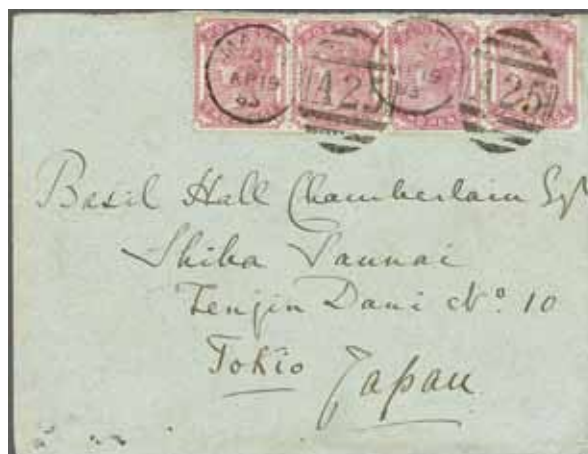 MALTA AP 19 83 A25 AP 19 83 A25
Basil Hall Chamberlain Esqr
Shiba Sannai
Tenjin Dani No. 10
Tokio Japan